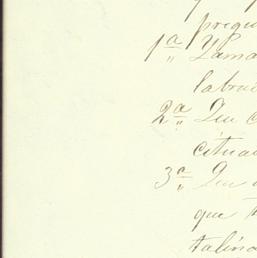 pregu
1ª Llama
labrad
2ª Que c
citua
3ª Que
que t
talino